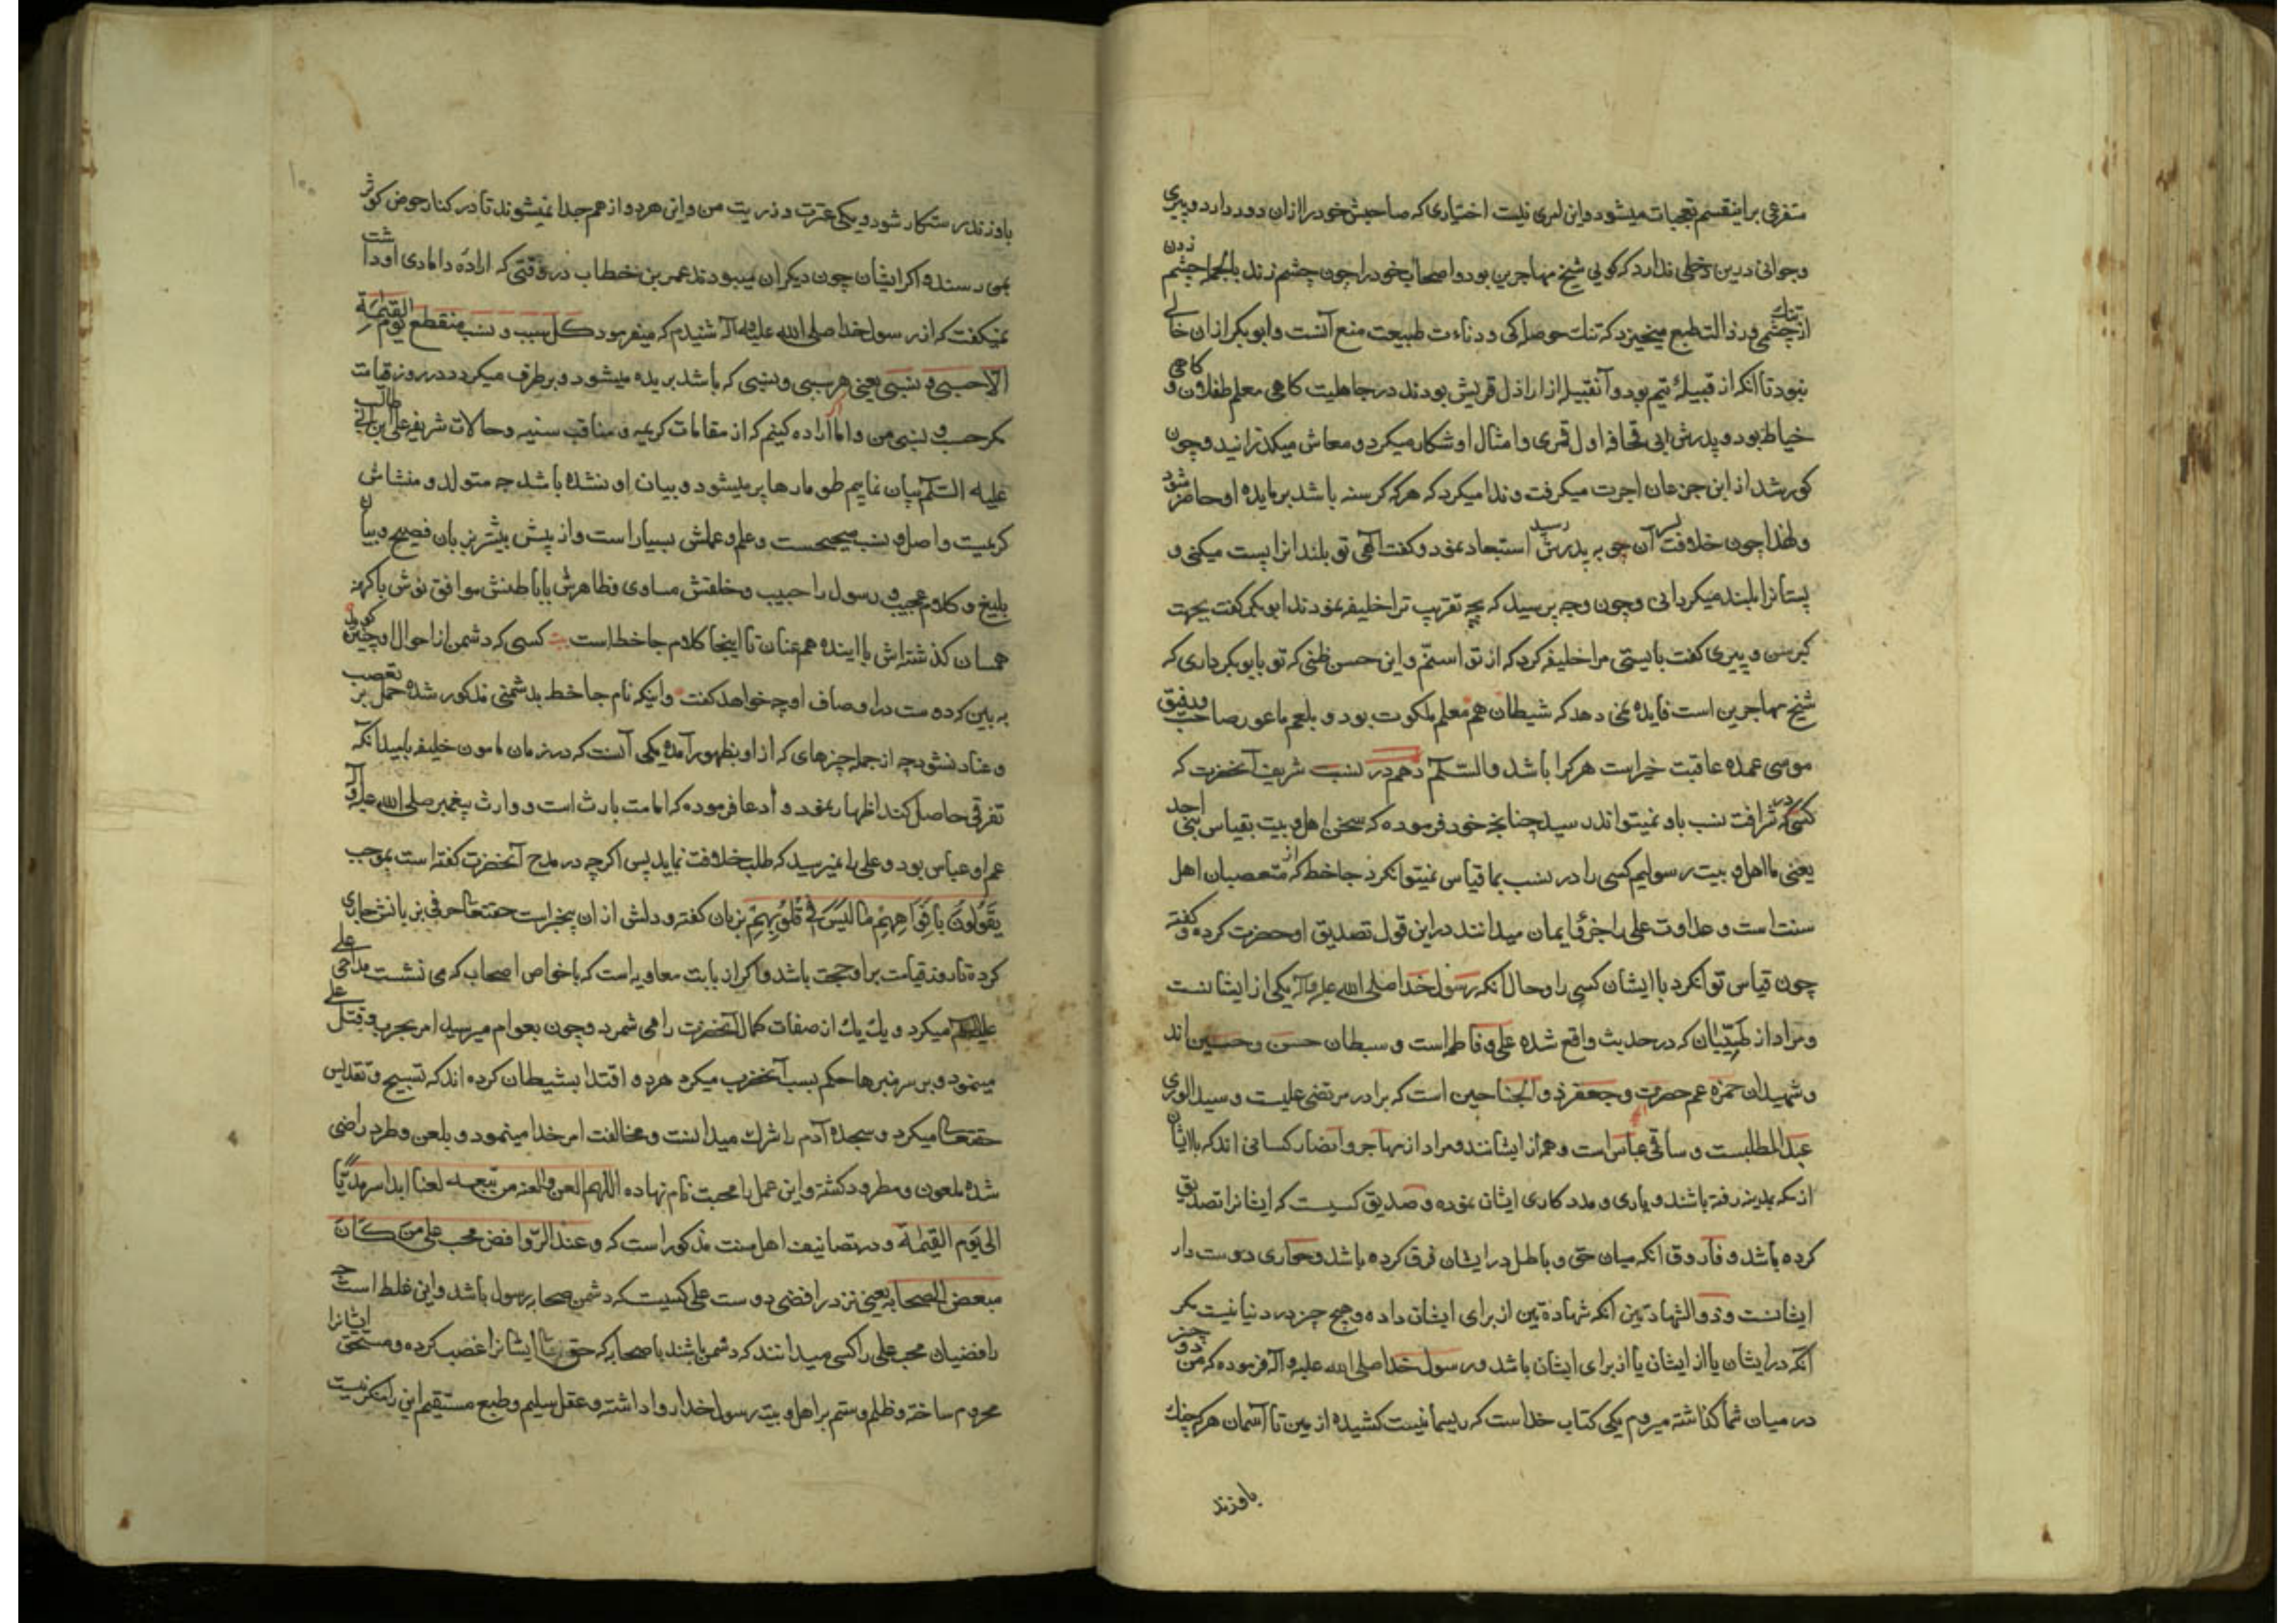 متفرعی براینقسم تعجبات میشود واین امری نیست اختیاری که صاحبش خود را ازان دور دارد و پیری
و جوانی درین دخلی ندارد که کویی شیخ مهاجرین بود و اصحاب خود را چون چشم زند بالجمله چشم زدن
از تنك چشمی و رذالت طبع میخیزد که تنك حوصلکی و دناءت طبیعت منبع آنست و ابو بکر ازان خالی
نبود تا آنکه از قبیلهٔ تیم بود و آنقبیله از اراذل قریش بودند در جاهلیت کاهی معلم طفلان و کاهی
خیاط بود و پدرش ابی قحافه اول قمری و امثال او شکار میکرد و معاش میکذرانید و چون
کور شد از ابن جدعان اجرت میکرفت و ندا میکرد که هرکه کرسنه باشد بر مایده او حاضر شود
ولهذا چون خلافت پسر آن چو به پدرش رسید استبعاد نمود و کفت الهی تو بلند انرا پست میکنی و
پستانرا بلند میکردانی و چون وجه پرسید که بچه تقریب ترا خلیفه نمودند ابو بکر کفت بجهت
کبر سن و پیری کفت بایستی مرا خلیفه کرد که از تو اسنّم و این حسن ظنی که تو بابو بکر داری که
شیخ مهاجرین است فایده نمی دهد که شیطان هم معلم ملکوت بود و بلعم باعور صاحب و رفیق
موسی عمده عاقبت خیر است هر کرا باشد والسّلم دهم در نسب شریف آنحضرت که
کسی در شرافت نسب باو نمیتواند رسید چنانچه خود فرموده که سخن اهل بیت بقیاس بنی احد
یعنی ما اهل بیت رسولیم کسی را در نسب بما قیاس نمیتوانکرد جاخط که از متعصبان اهل
سنت است و عداوت علی را جزو ایمان میدانند در این قول تصدیق او حضرت کرده و کفته
چون قیاس توانکرد با ایشان کسی را و حال آنکه رسول خدا صلی الله علیه و آله یکی از ایشانست
و مراد از طیّبان که در حدیث واقع شده علی و فاطمه است و سبطان حسن و حسین اند
و شهیدان حمزه عم حضرت و جعفر ذو الجناحین است که برادر مرتضی علیست و سید الوری
عبد المطلبست و ساقی عباس است و هم از ایشانند و مراد از مهاجر و انصار کسانی اند که با ایشان
از مکه بمدینه رفته باشند و یاری و مدد کاری ایشان نموده و صدیق کسیست که ایشانرا تصدیق
کرده باشد و فاروق انکه میان حق و باطل در ایشان فرق کرده باشد و حواری دوست دار
ایشانست و ذو الشهادتین آنکه شهادتین از برای ایشان داده و هیچ چیز در دنیا نیست مکر
آنکه در ایشان یا از ایشان یا از برای ایشان باشد و رسول خدا صلی الله علیه و آله فرموده که من دو چیز
در میان شما کذاشته میروم یکی کتاب خداست که ریسمانیست کشیده از زمین تا آسمان هر که چنك
باو زند
۱۰۰
باو زند رستکار شود و یکی عترت و ذریت من و این هر دو از هم جدا نمیشوند تا در کنار حوض کوثر
بمن رسند و اکر ایشان چون دیکران میبودند عمر بن خطاب در وقتی که اراده دامادی او داشت
نمیکفت که از رسول خدا صلی الله علیه و آله شنیدم که میفرمود کل سبب و نسب منقطع یوم القیمة
الّا حسبی و نسبی یعنی هر سببی و نسبی که باشد بریده میشود و بر طرف میکردد در روز قیامت
مکر حسب و نسبی من و اما اراده کنیم که از مقامات کریمه و مناقب سنیه و حالات شریفه علی ابن ابی طالب
علیه السّلم بیان نماییم طومارها پر میشود و بیان او نشده باشد چه متولد و منشاش
کریمیت و اصل و نسب صحیحست و علم و عملش بسیار است و از پیش بیشتر بزبان فصیح و بیان
بلیغ و کلام عجیب و رسول را حبیب و خلقتش مساوی و ظاهرش با باطنش موافق نوش با کهنه
همسان کذشته اش با اینده هم عنان تا اینجا کلام جاخط است بیت کسی که دشمن از احوال او چنین کوید
به بین که دوست در اوصاف او چه خواهد کفت و اینکه نام جاخط بدشمنی مذکور شده حمل بر تعصب
و عناد نشود چه از جمله چیزهای که از او بظهور آمده یکی آنست که در زمان مامون خلیفه بامید آنکه
تفرقی حاصل کند اظهار نمود و ادعا فرموده که امامت بارث است و وارث پیغمبر صلی الله علیه و آله
عم او عباس بود و علی را نمیرسید که طلب خلافت نماید پس اکر چه در مدح آنحضرت کفته است بموجب
یَقُولُونَ بِاَفْوَاهِهِمْ مَا لَیْسَ فی قُلُوبِهِمْ بزبان کفته و دلش ازان بیخبر است حقتعالی حرفی بزبانش جاری
کرده تا روز قیامت بر او حجت باشد و اکر از بابت معاویه است که با خواص اصحاب که می نشست مداحی علی
علیه السلم میکرد و یك یك از صفات کمال آنحضرت را می شمرد و چون بعوام میرسید امر بحرب و قتل علی
مینمود و بر سر منبرها حکم بسب آنحضرت میکرد هر دو اقتدا بشیطان کرده اند که تسبیح و تقدیس
حقتعالی میکرد و سجده آدم را شرك میدانست و مخالفت امر خدا مینمود و بلعن و طرد راضی
شده ملعون و مطرود کشته و این عمل را محبت نام نهاده اللهم العن والعنه من تبعه لعنا ابدا سرمدیّا
الی یَوم القیمة و در تصانیف اهل سنت مذکور است که و عند الرّوافض محب علی من کَانَ
مبغض الصحابه یعنی نزد رافضی دوست علی کسیست که دشمن صحابه رسول باشد و این غلط است چه
رافضیان محب علی را کسی میدانند که دشمن باشند با صحابه که حق ایشانرا غصب کرده و مستحق ایشانرا
محروم ساخته و ظلم و ستم بر اهل بیت رسول خدا روا داشته و عقل سلیم و طبع مستقیم این را منکر نیست